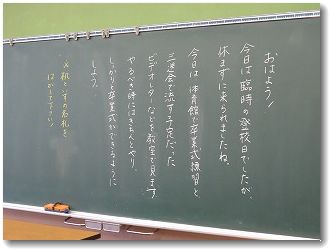 おはよう！
今日は臨時の登校日でしたが、
休まずに来られましたね。
今日は、体育館で卒業式練習と、
三送会で流す予定だった
ビデオレターなどを教室で見ます。
やるべき時にはきちんとやり、
しっかりと卒業式ができるように
しよう。
机といすの名札を
はがして下さい！